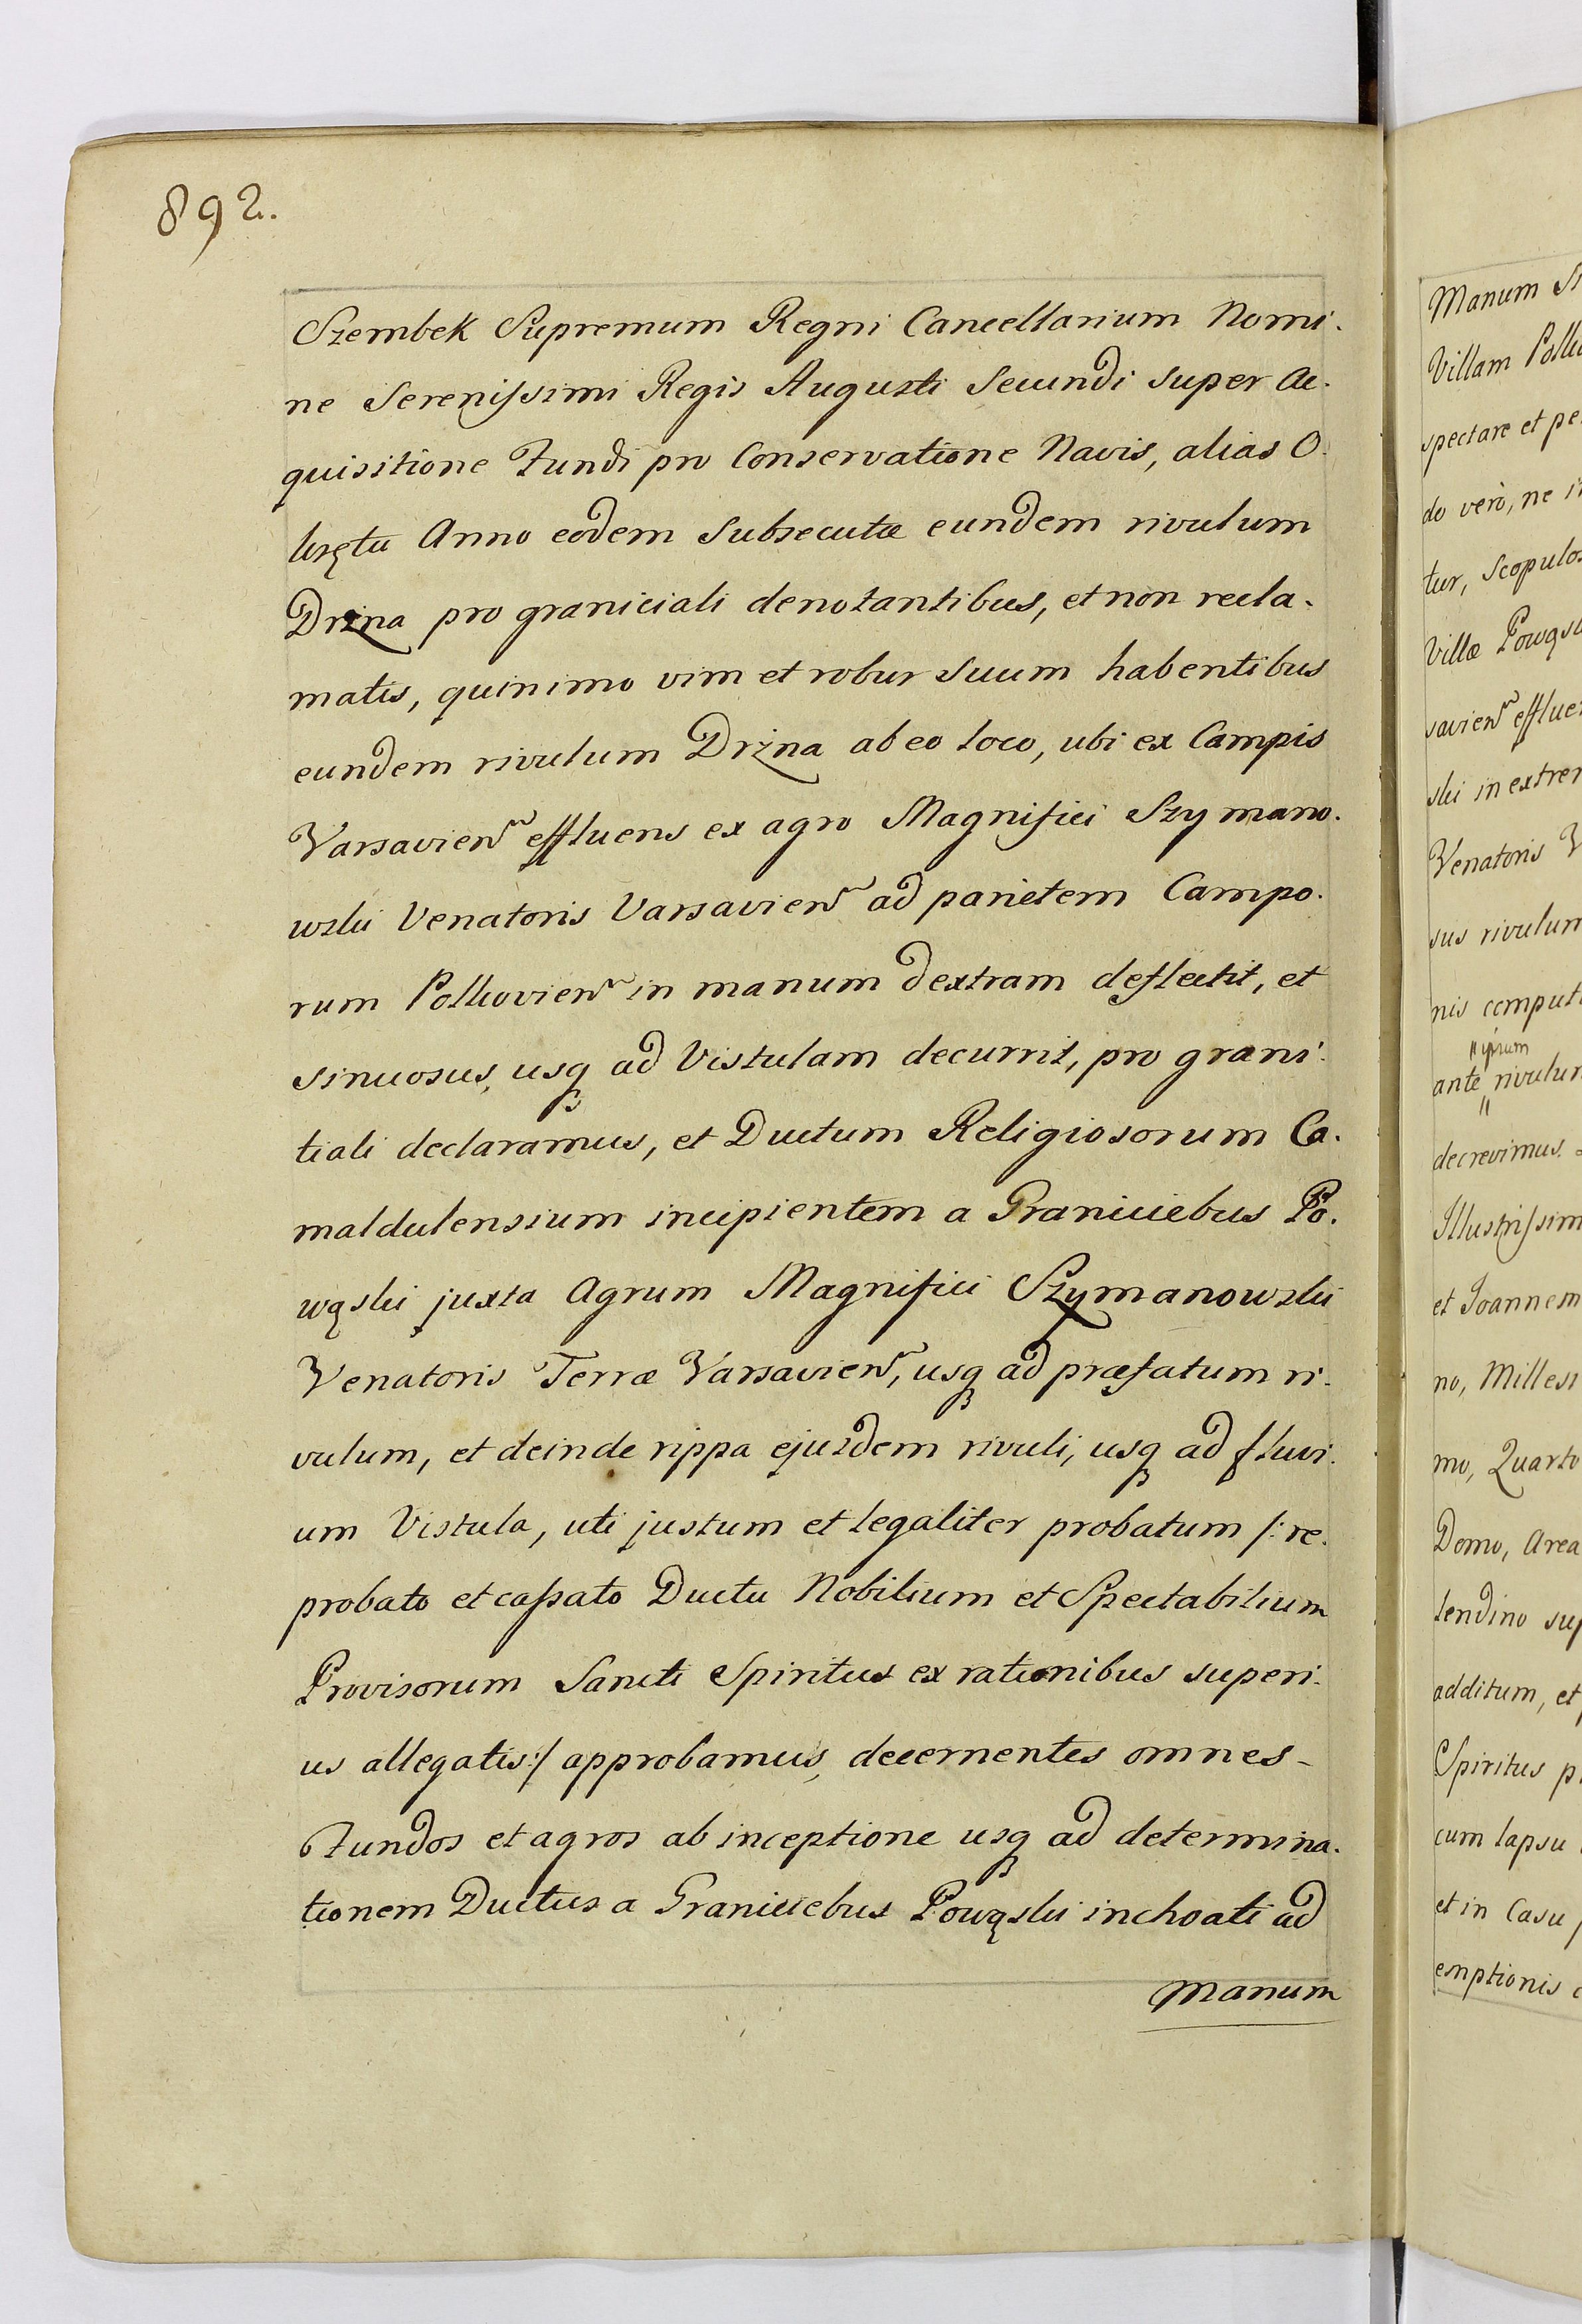 892.
Szembek Supremum Regni Cancellarium Nomi.
ne Serenissimi Regis Augusti Secundi super Ac.
quisitione Fundi pro Conservatione Navis, alias O.
krętu Anno eodem subsecutæ eundem rivulum
Drzna pro graniciali denotantibus, et non recla.
matis, quinimo vim et robur suum habentibus
eundem rivulum Drzna ab eo loco, ubi ex Campis
Varsavien effluens ex agro Magnifici Szymano.
wski Venatoris Varsavien ad parietem Campo.
rum Polkovien in manum dextram deflectit, et
sinuosus, usq ad Vistulam decurrit, pro grani.
tiali declaramus, et Ductum Religiosorum Ca.
maldulensium incipientem a Graniciebus Po.
wąski juxta Agrum Magnifici Szymanowski
Venatoris Terræ Varsavien, usq ad præfatum ri.
vulum, et deinde rippa ejusdem rivuli, usq ad fluvi.
um Vistula, uti justum et legaliter probatum /: re.
probato et cassato Ductu Nobilium et Spectabilium
Provisorum Sancti Spiritus ex rationibus superi.
us allegatis :/ approbamus, decernentes omnes-
Fundos et agros ab inceptione usq ad determina.
tionem Ductus a Graniciebus Powąski inchoati ad
Manum
Manum
Villam
spectare et
do verò, ne
tur,
Villæ
savien
ski in
Venatoris
sus rivulum
nis
ipsum
ante
decrevimus.
et Joannem
no,
mo, Quarto
Domo, Area
additum, et
Spiritus
cum lapsu
et in Casu
emptionis